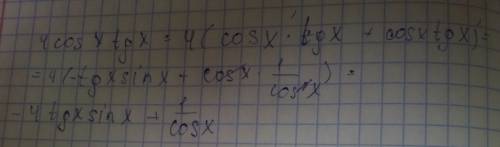 4cosx tgx = 4(cosx'·tgx + cosx tgx)'=
= 4(-tgx sinx + cosx · 1/cos²x) =
- 4 tgx sinx + 1/cosx